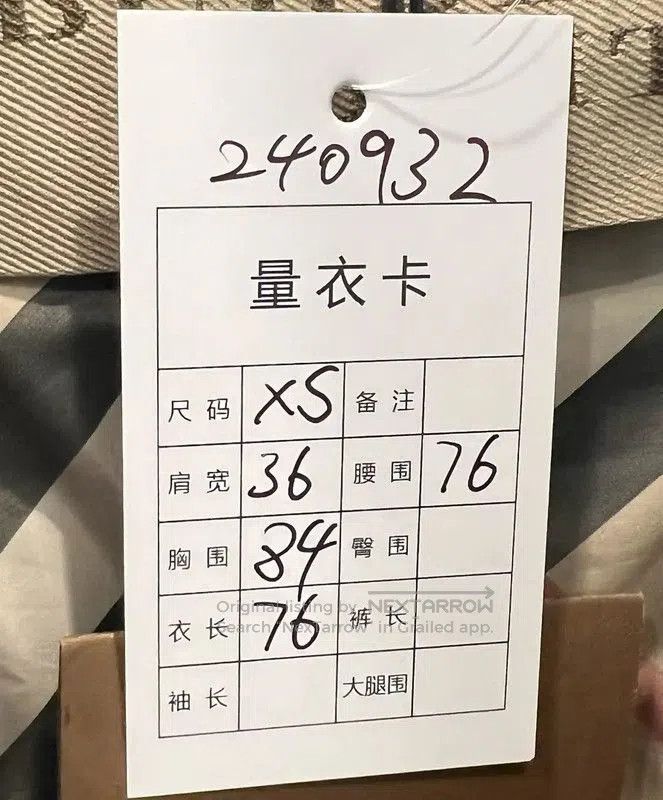 240932
量衣卡
尺码 XS 备注
肩宽 36 腰围 76
胸围 84 臀围
衣长 76 裤长
袖长 大腿围
Original listing by NEXTARROW
Search "NexTarrow" in Grailed app.